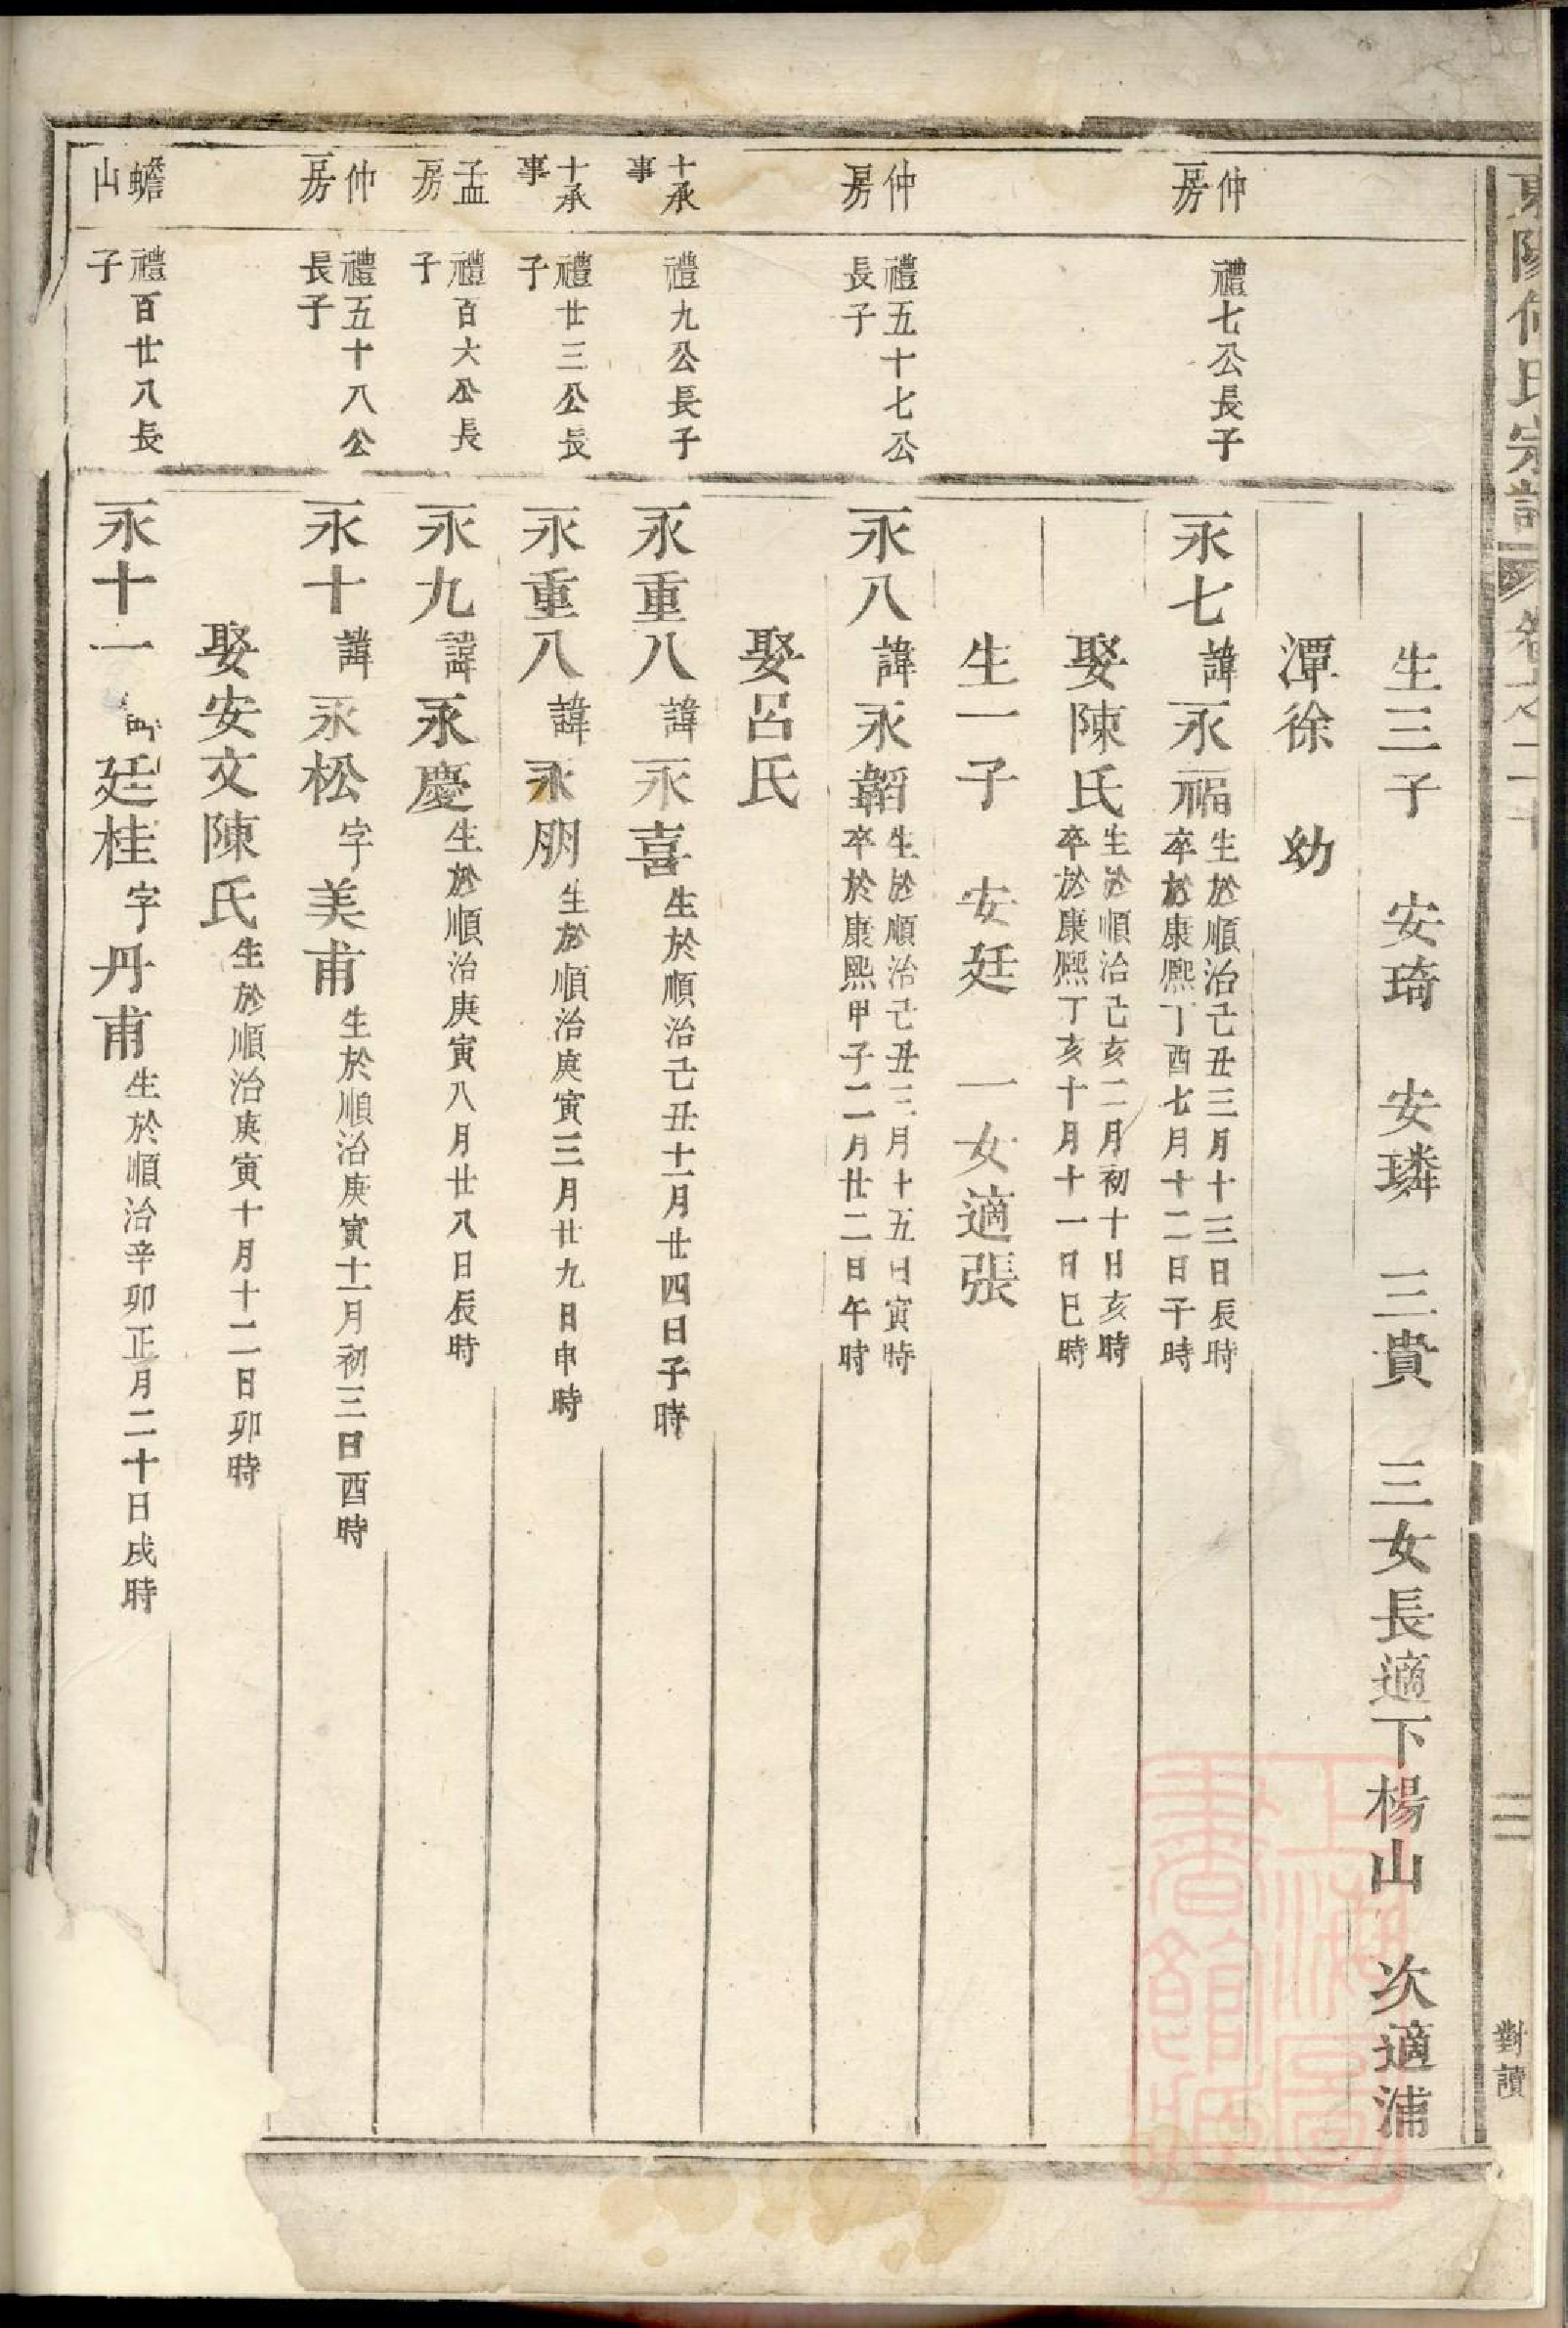 東陽何氏宗譜 卷之二十 三 對讀
生三子 安琦 安璘 三貴 三女長適下楊山 次適浦
潭徐 幼
仲房
禮七公長子
永七諱永福 生於順治己丑三月十三日辰時
卒於康熙丁酉七月十二日午時
娶陳氏 生於順治己亥二月初十日亥時
卒於康熙丁亥十月十一日巳時
生一子 安廷 一女適張
仲房
禮五十七公長子
永八諱永韜 生於順治己丑三月十五日寅時
卒於康熙甲子二月廿二日午時
娶呂氏
十承事
禮九公長子
永重八諱永喜 生於順治己丑十一月廿四日子時
十承事
禮廿三公長子
永重八諱永朋 生於順治庚寅三月廿九日申時
孟房
禮百六公長子
永九諱永慶 生於順治庚寅八月廿八日辰時
仲房
禮五十八公長子
永十諱永松字美甫 生於順治庚寅十一月初三日酉時
娶安文陳氏 生於順治庚寅十月十二日卯時
蟾山
禮百廿八長子
永十一 廷桂字丹甫 生於順治辛卯正月二十日戌時
上海圖書館藏